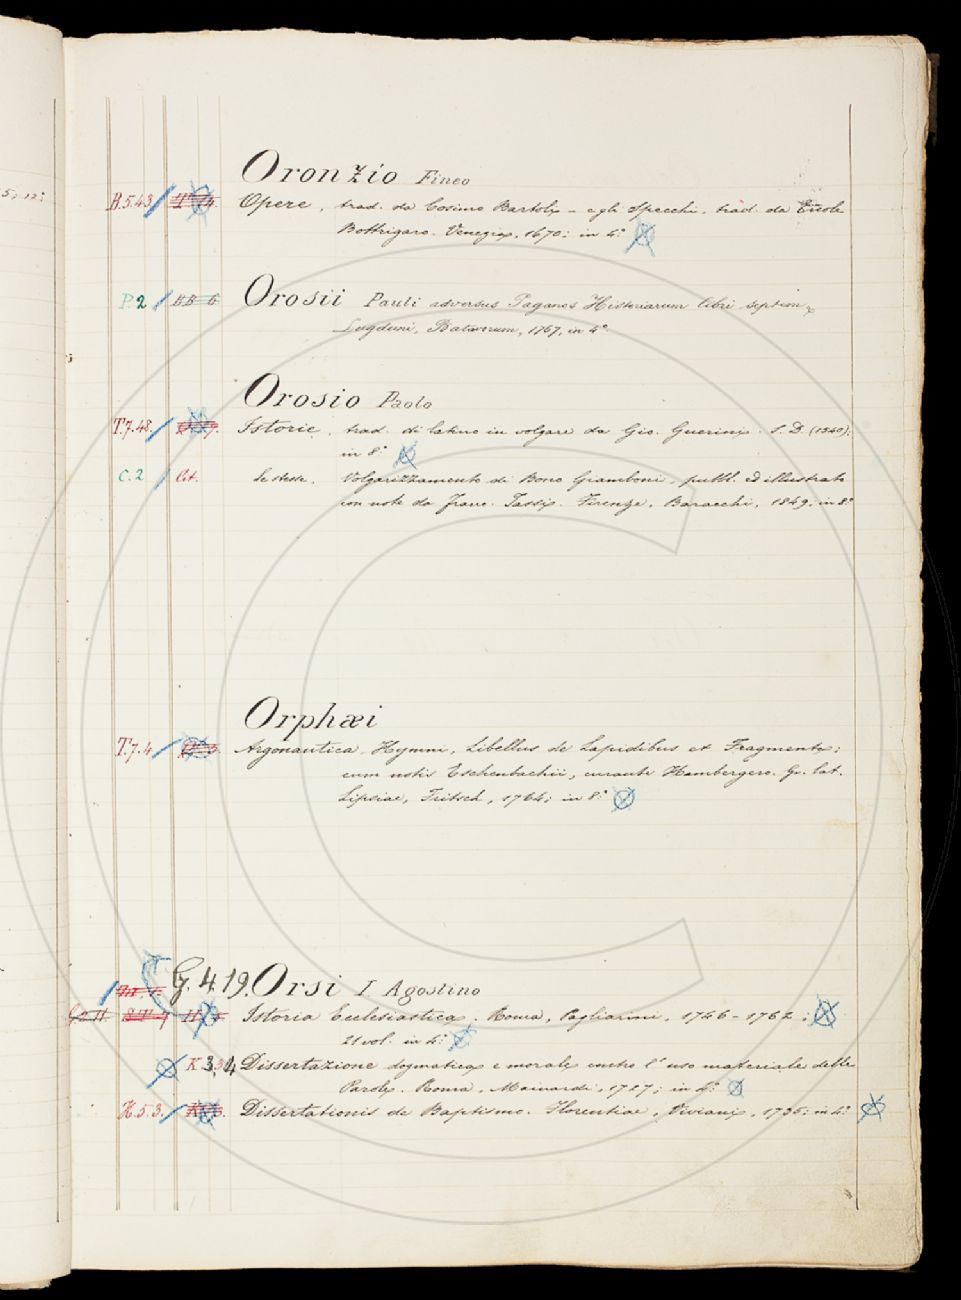 5, 12°
Oronzio Fineo
B.5.43 Opere, trad. da Cosimo Bartoli - e gli Specchi, trad. da Ercole
Bottrigaro. Venezia, 1670; in 4°
P.2 BB 6 Orosii Pauli adversus Paganos Historiarum libri septem
Lugduni, Batavorum, 1767, in 4°
Orosio Paolo
T.7.48. Istorie, trad. di latino in volgare da Gio. Guerini. S. D. (1540).
in 8°
C.2 Cit. Le stesse. Volgarizzamento di Bono Giamboni, pubbl. ed illustrato
con note da Franc. Tassi. Firenze, Baracchi, 1849, in 8°
Orphæi
T.7.4 Argonautica, Hymni, Libellus de Lapidibus et Fragmenta;
cum notis Eschenbachii, curante Hambergero. Gr. lat.
Lipsiae, Fritsch, 1764; in 8°
G.4.19. Orsi I. Agostino
Istoria Ecclesiastica. Roma, Pagliarini, 1746-1762;
21 vol. in 4°
K 3.4 Dissertazione dogmatica e morale contro l'uso materiale delle
Parole. Roma, Mainardi, 1727; in 4°
H.5.3. Dissertationis de Baptismo. Florentiae, Viviani, 1735; in 4°